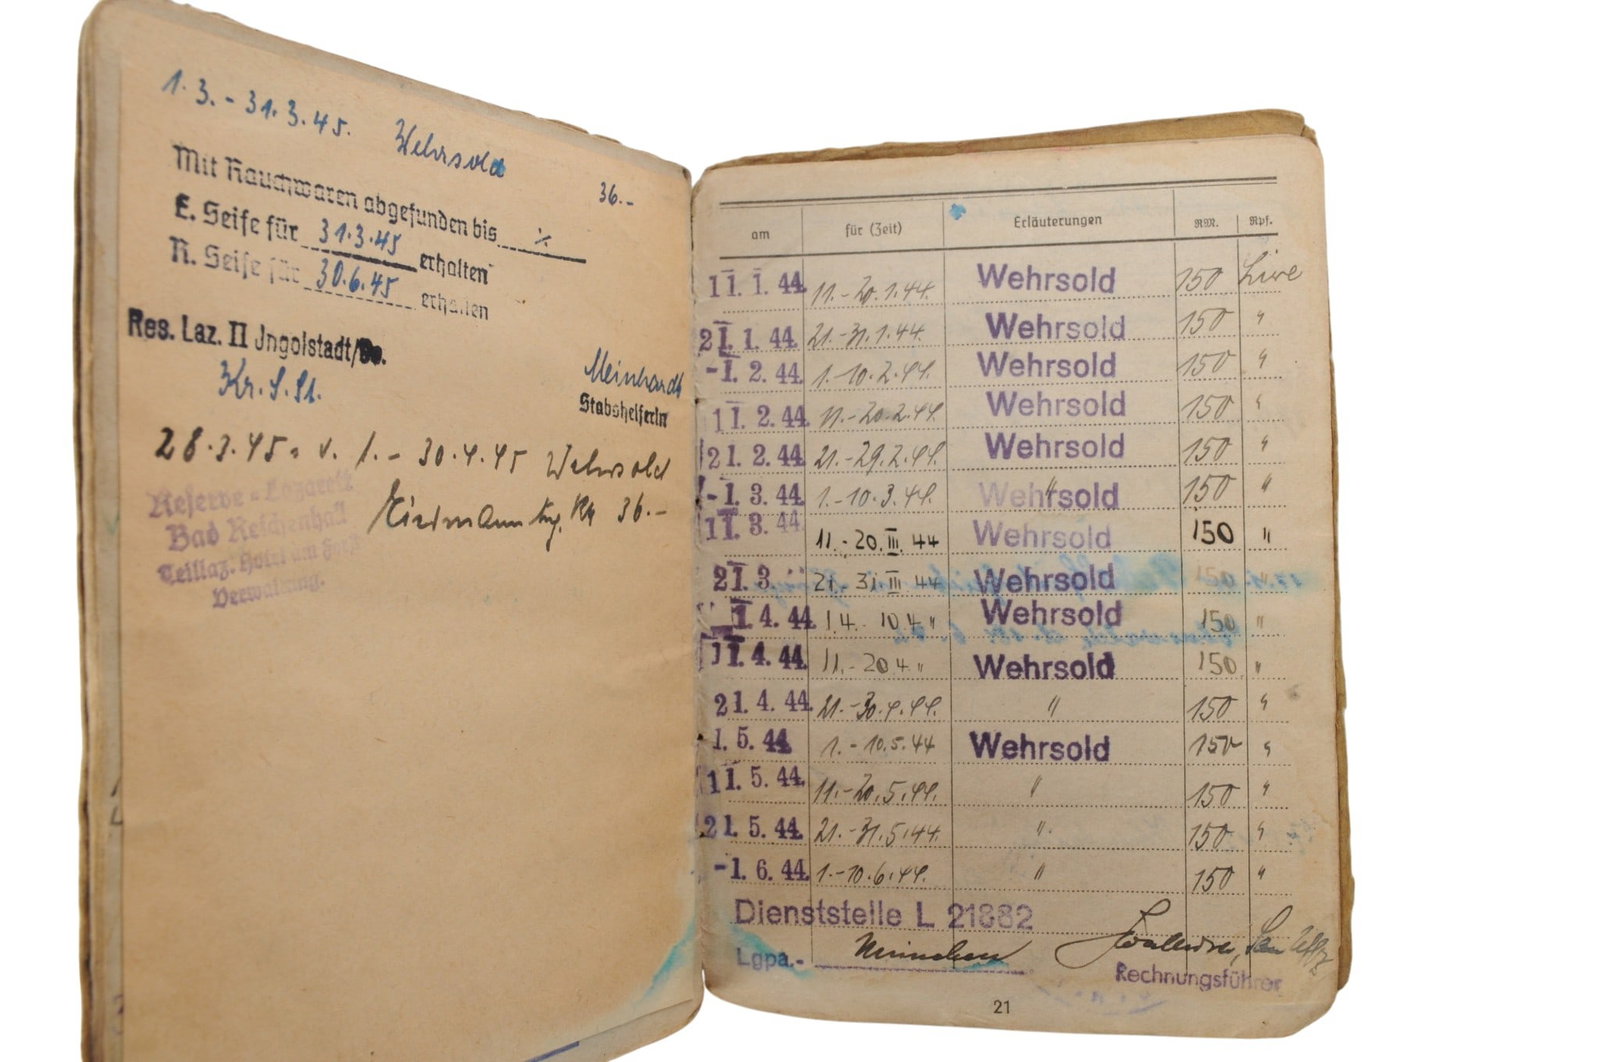 1.3.-31.3.45. Wehrsold
36.-
Mit Rauchwaren abgefunden bis ./.
E. Seife für 31.3.45 erhalten
R. Seife für 30.6.45 erhalten
Res. Laz. II Ingolstadt/Do.
Kr.S.St.
Meinhardt
Stabshelferin
28.3.45. v. 1.-30.4.45 Wehrsold
36.-
Reserve-Lazarett
Bad Reichenhall
Teillaz. Hotel am
Verwaltung.
am für (Zeit) Erläuterungen RM. Rpf.
11.1.44. 11.-20.1.44. Wehrsold 150 Lire
21.1.44. 21.-31.1.44. Wehrsold 150 "
-1.2.44. 1.-10.2.44. Wehrsold 150 "
11.2.44. 11.-20.2.44. Wehrsold 150 "
21.2.44. 21.-29.2.44. Wehrsold 150 "
-1.3.44. 1.-10.3.44. Wehrsold 150 "
11.3.44. 11.-20.III.44 Wehrsold 150 "
21.3. 21. 31 III 44 Wehrsold 150 "
1.4.44. 1.4. 10.4 " Wehrsold 150 "
11.4.44. 11.-20.4. " Wehrsold 150 "
21.4.44. 21.-30.4.44. " 150 "
1.5.44. 1.-10.5.44 Wehrsold 150 "
11.5.44. 11.-20.5.44. " 150 "
21.5.44. 21.-31.5.44. " 150 "
-1.6.44. 1.-10.6.44. " 150 "
Dienststelle L 21882
Lgpa.- München
Rechnungsführer
21